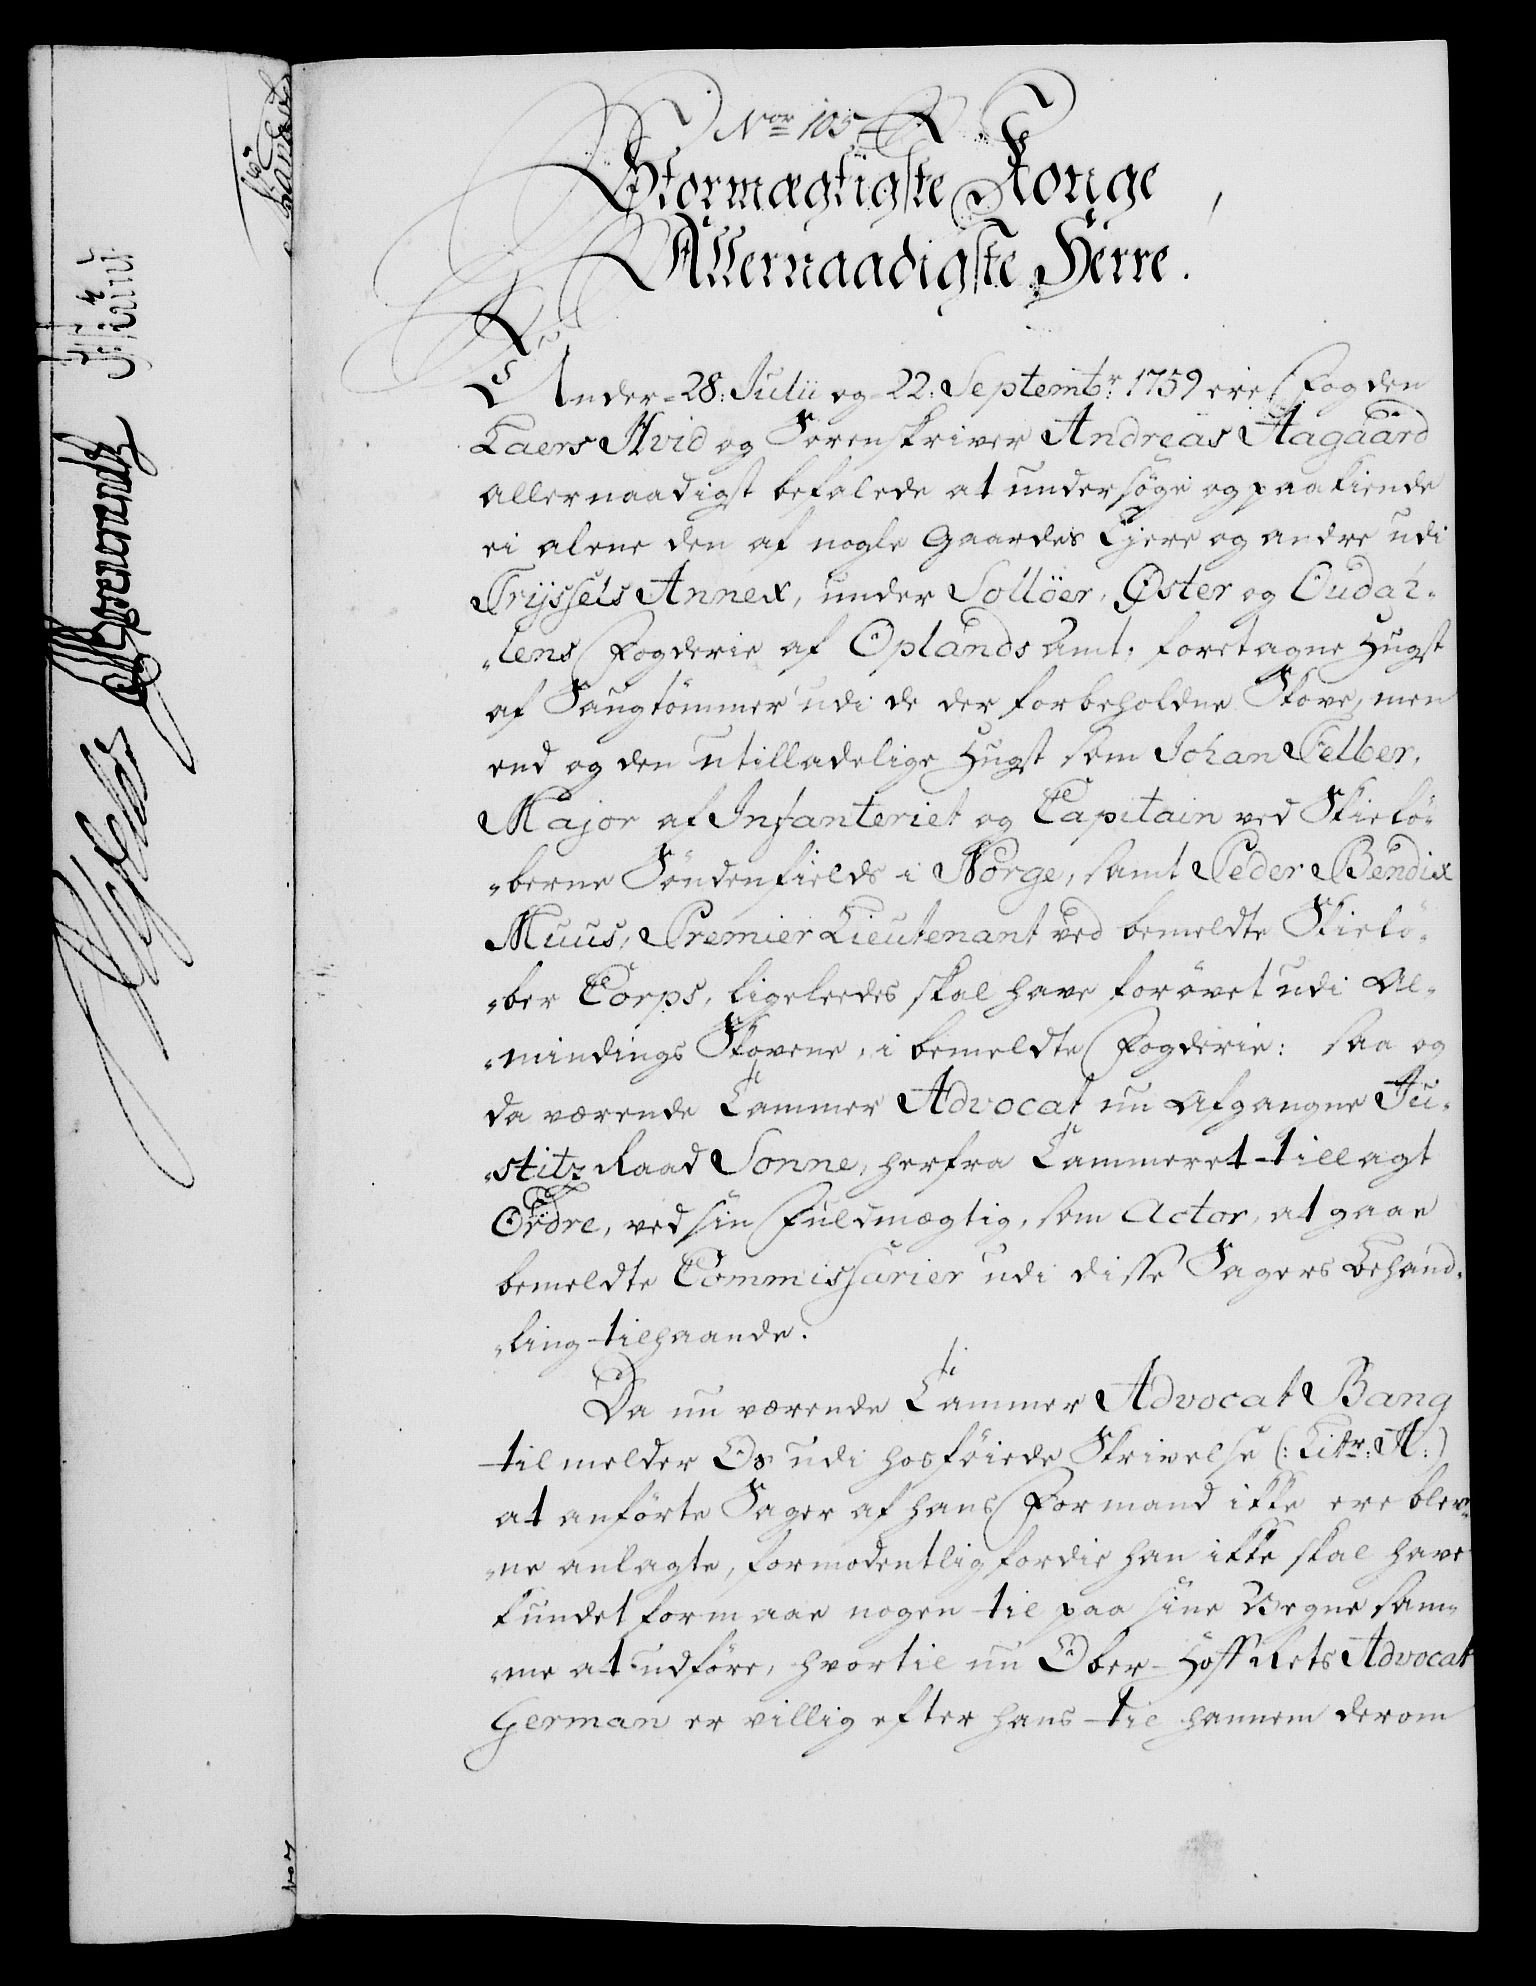 Nor 105
Stormægtigste Konge,
Allernaadigste Herre.
Under 28: Julii og 22: Septembr: 1759 ere Fogden
Laers Hvid og Sorenskriver Andreas Aagaard
allernaadigst befalede at undersöge og paakiende
ei alene den af nogle Gaardes Ejere og andre udi
Tryssels Annex, under Sollöer, Øster og Oudah-
-lens Fogderie af Oplands Amt, foretagne Hugst
af Saugtömmer udi de der forbeholdne Skove, men
end og den utilladelige Hugst som Johan Felber,
Major af Infanteriet og Capitain ved Skielö-
-berne Söndenfields i Norge, samt Peder Bendix
Muus, Premier Lieutenant ved bemeldte Skielö-
-ber Corps, ligeleedes skal have forövet udi Al-
-mindings Skovene, i bemeldte Fogderie: saa og
da værende Cammer Advocat nu Afgangne Ju-
-stitz Raad Sonne, herfra Cammeret tillagt
Ordre, ved sin Fuldmægtig, som Actor, at gaae
bemeldte Commissarier udi disse Sagers Behand-
-ling tilhaande.
Da nu værende Cammer Advocat Bang
tilmelder Os udi hosföiede Skrivelse (: Litr: A:)
at anförte Sager af hans Formand ikke ere blev-
-ne anlagte, formodentlig fordie han ikke skal have
kundet formaae nogen til paa sine Vegne sam-
-me at udföre, hvortil nu Ober-Hoff Rets Advocat
German er villig efter hans til hannem derom